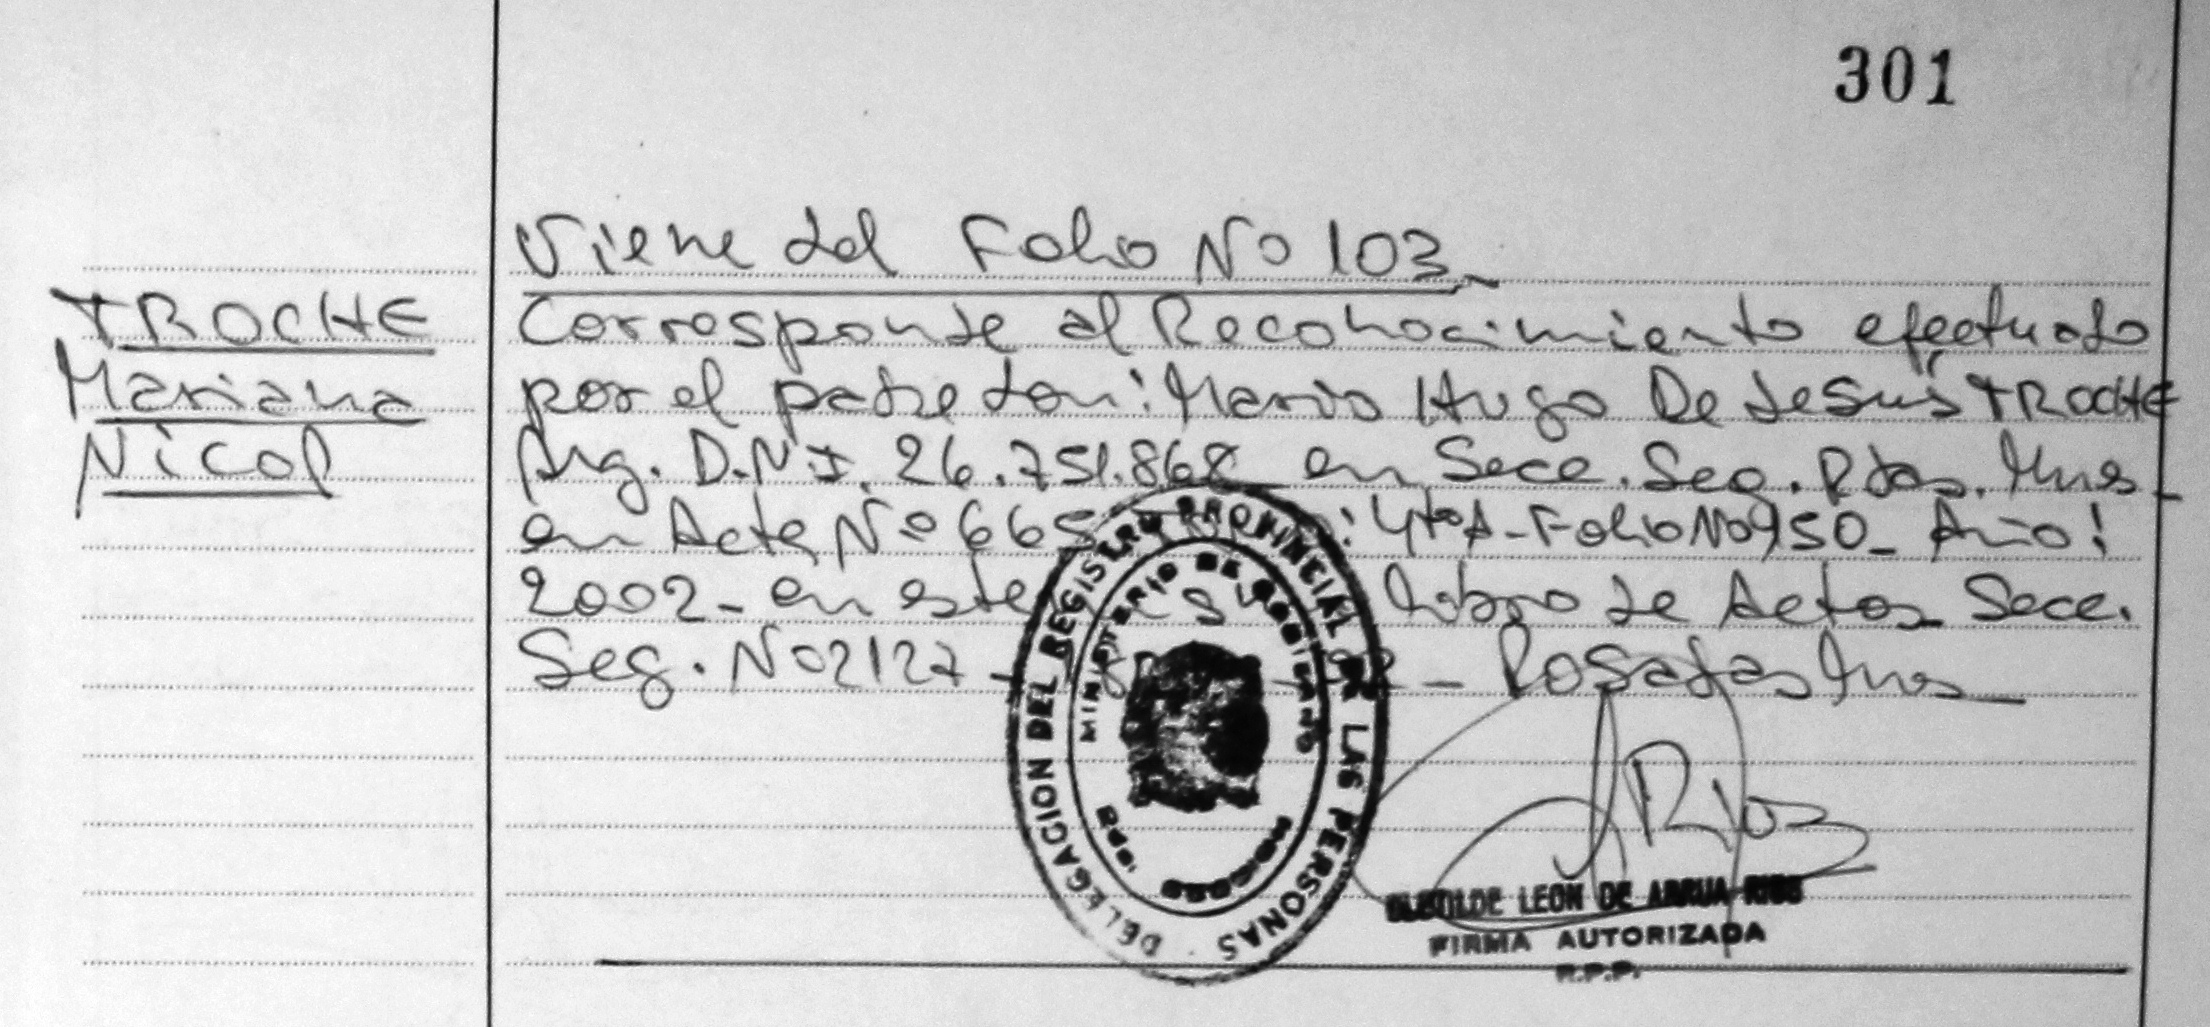 301
TROCHE
Mariana
Nicol
Viene del Folio Nº 103_
Corresponde al Reconocimiento efectuado
por el padre don: Mario Hugo De Jesús TROCHE
Arg. D.N.I. 26.751.868 en Secc. Seg. Pdas. Mnes_
en Acta Nº 665 : 4to A - Folio Nº 950_ Año:
2002_ en este libro de Actas Secc.
Seg. Nº 2127_ _ Posadas Mnes_
DELEGACION DEL REGISTRO PROVINCIAL DE LAS PERSONAS
MINISTERIO DE GOBIERNO
POSADAS
ARios
LEON DE ABRUA RIOS
FIRMA AUTORIZADA
R.P.P.